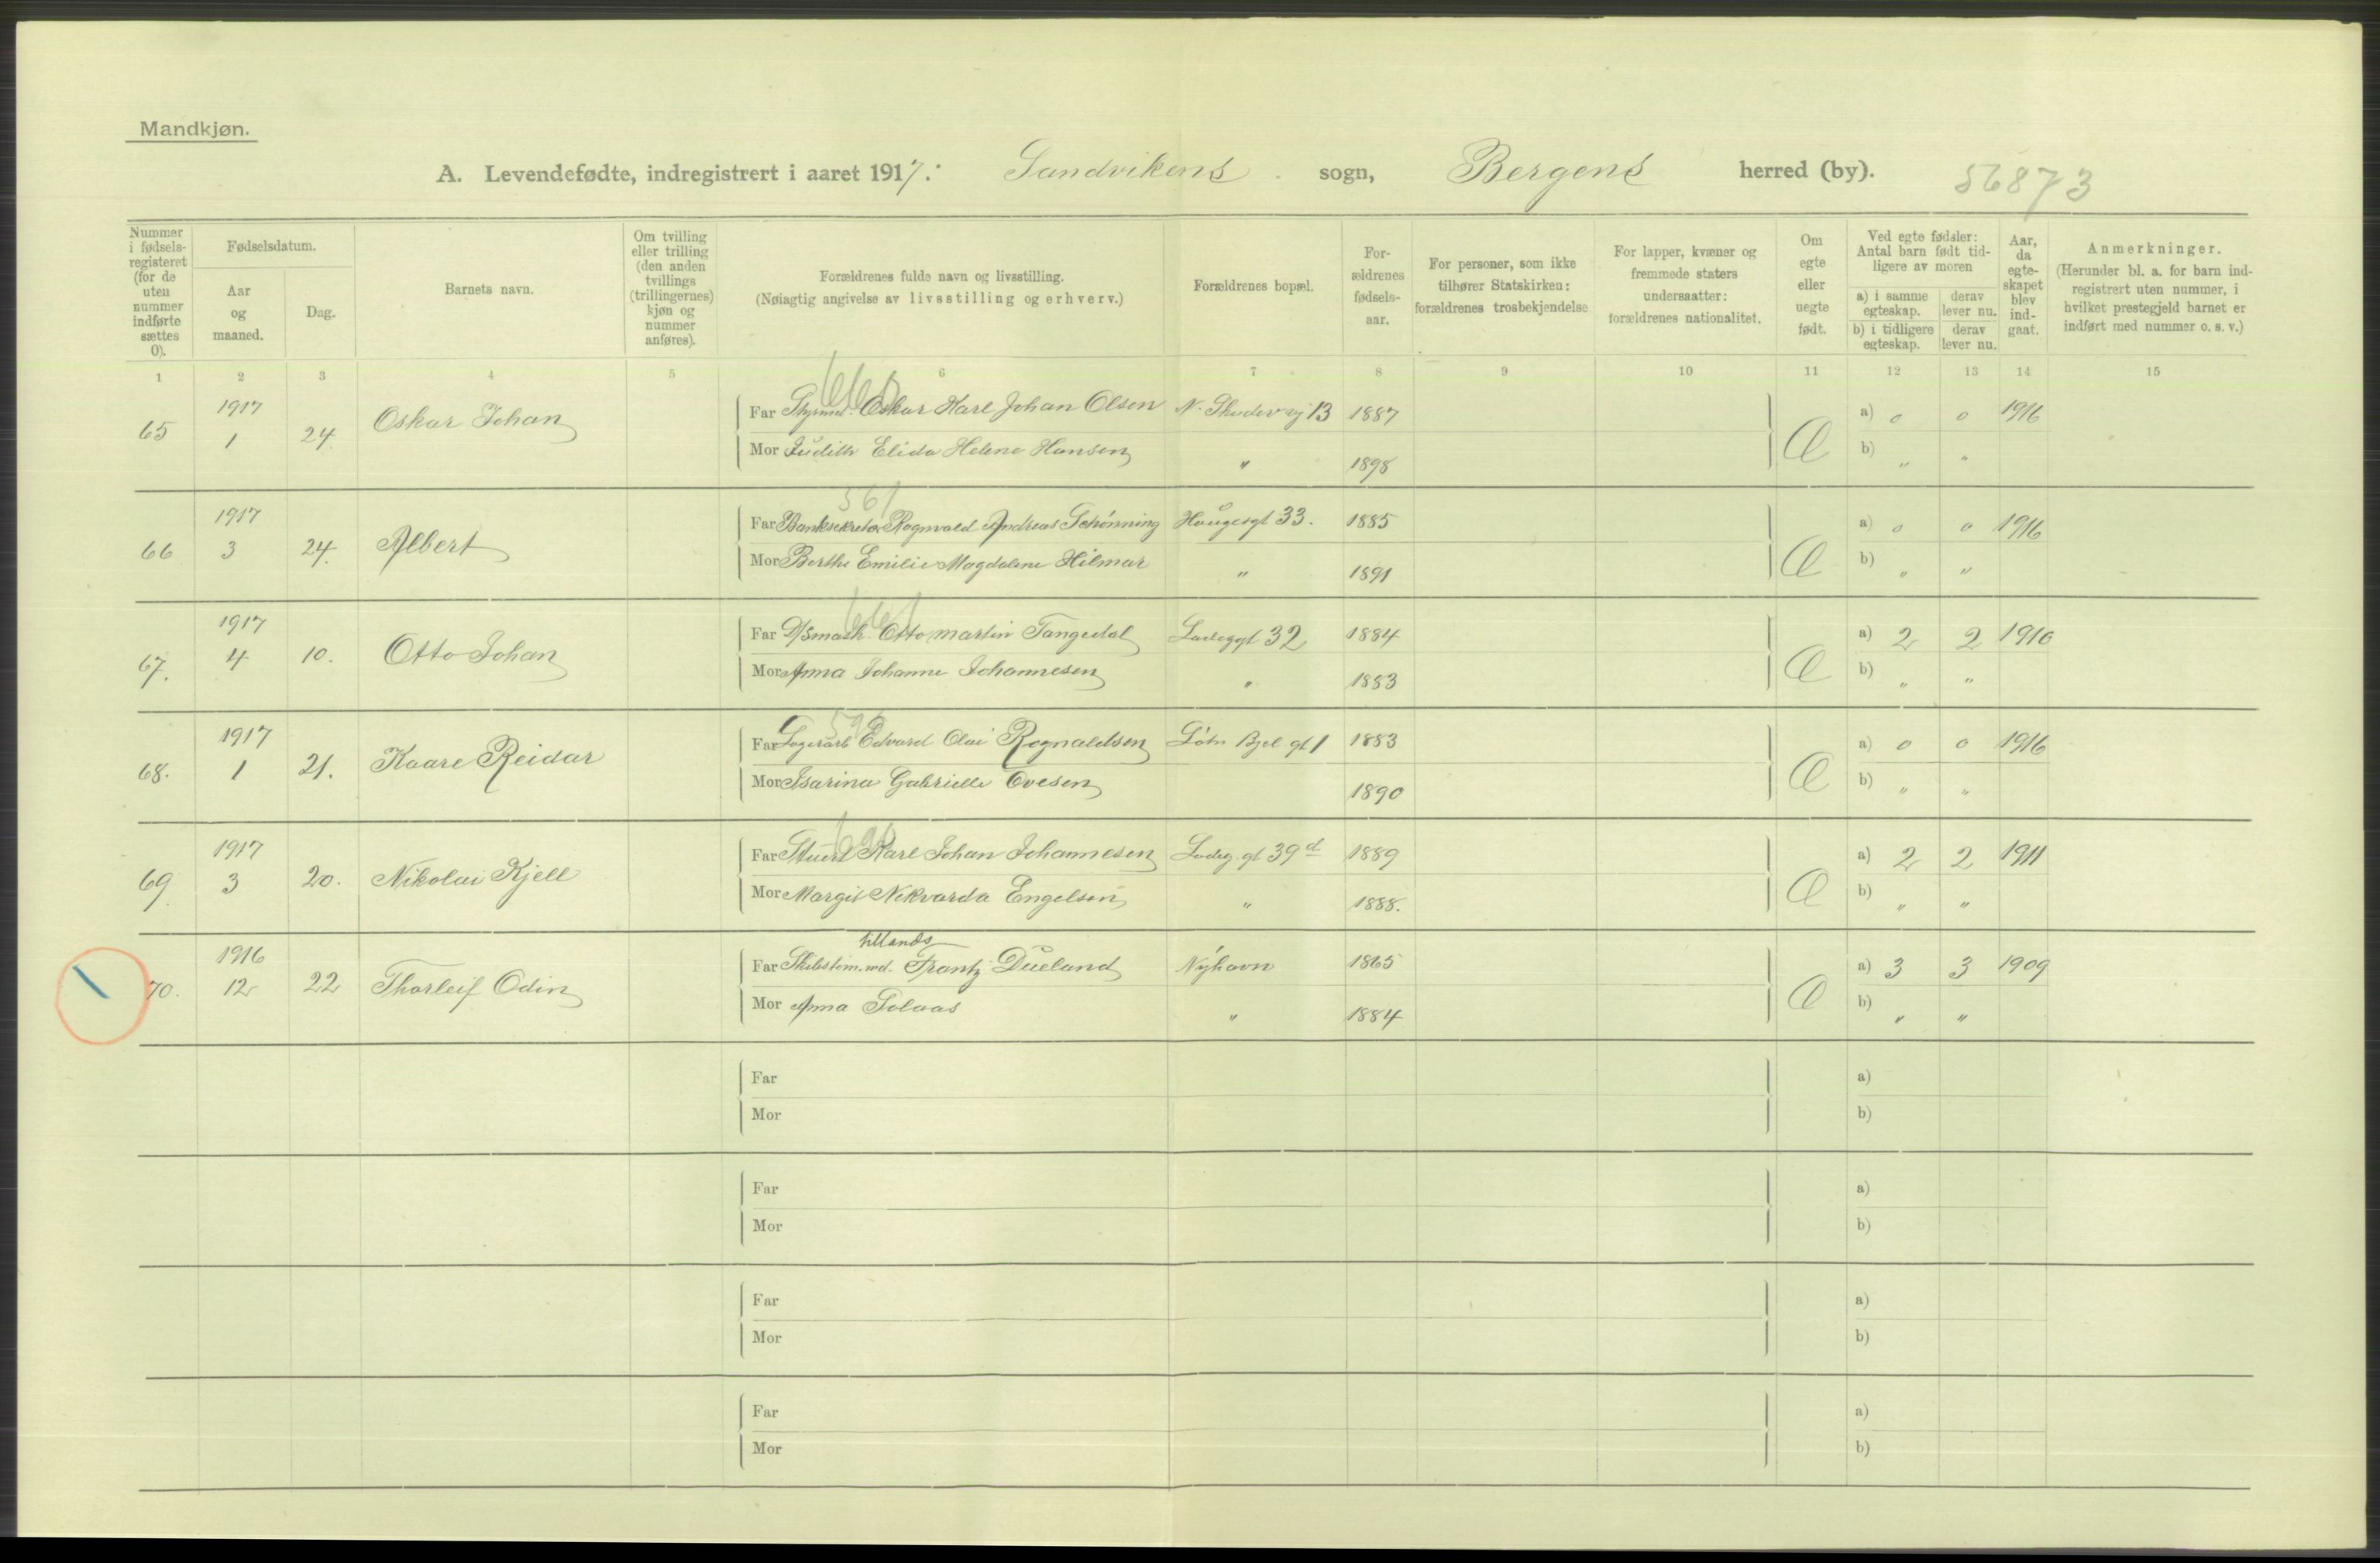 Mandkjøn.
A. Levendefødte, indregistrert i aaret 1917. Sandvikens sogn, Bergens herred (by). 56873
Nummer i fødsels-registeret (for de uten nummer indførte sættes 0).
Fødselsdatum.
Aar og maaned.
Dag.
Barnets navn.
Om tvilling eller trilling (den anden tvillings (trillingernes) kjøn og nummer anføres).
Forældrenes fulde navn og livsstilling.
(Nøiagtig angivelse av livsstilling og erhverv.)
Forældrenes bopæl.
For-ældrenes fødsels-aar.
For personer, som ikke tilhører Statskirken: forældrenes trosbekjendelse
For lapper, kvæner og fremmede staters undersaatter: forældrenes nationalitet.
Om egte eller uegte født.
Ved egte fødsler: Antal barn født tid-ligere av moren
a) i samme egteskap. derav lever nu.
b) i tidligere egteskap. derav lever nu.
Aar, da egte-skapet blev ind-gaat.
Anmerkninger.
(Herunder bl. a. for barn ind-registrert uten nummer, i hvilket prestegjeld barnet er indført med nummer o. s. v.)
1 2 3 4 5 6 7 8 9 10 11 12 13 14 15
65 1917 1 24. Oskar Johan Far Styrmd. Oskar Karl Johan Olsen N. Skudevej 13 1887 Æ a) 0 0 1916
Mor Judith Elida Helene Hansen " 1898 b) " "
561
66 1917 3 24. Albert Far Banksekretær Rognvald Andreas Schönning Haugesgt 33. 1885 Æ a) 0 0 1916
Mor Berthe Emilie Magdalene Hilmar " 1891 b) " "
661
67. 1917 4 10. Otto Johan Far D/Smask. Otto Martin Tangedal Ladeggt 32 1884 Æ a) 2 2 1910
Mor Anna Johanne Johannesen " 1883 b) " "
68. 1917 1 21. Kaare Reidar Far Lagerarb Edvard Olai Rognaldsen 1883 Æ a) 0 0 1916
Mor Isarina Gabrielle Ovesen 1890 b) " "
69 1917 3 20. Nikolai Kjell Far Stuert Karl Johan Johannesen Ladeg. gt 39d 1889 Æ a) 2 2 1911
Mor Margit Nikvarda Engelsen " 1888. b) " "
tillands
70. 1916 12 22 Thorleif Odin Far Skibstøm.md. Frantz Dueland Nyhavn 1865 Æ a) 3 3 1909
Mor Anna Solaas " 1884 b) " "
Far a)
Mor b)
Far a)
Mor b)
Far a)
Mor b)
Far a)
Mor b)